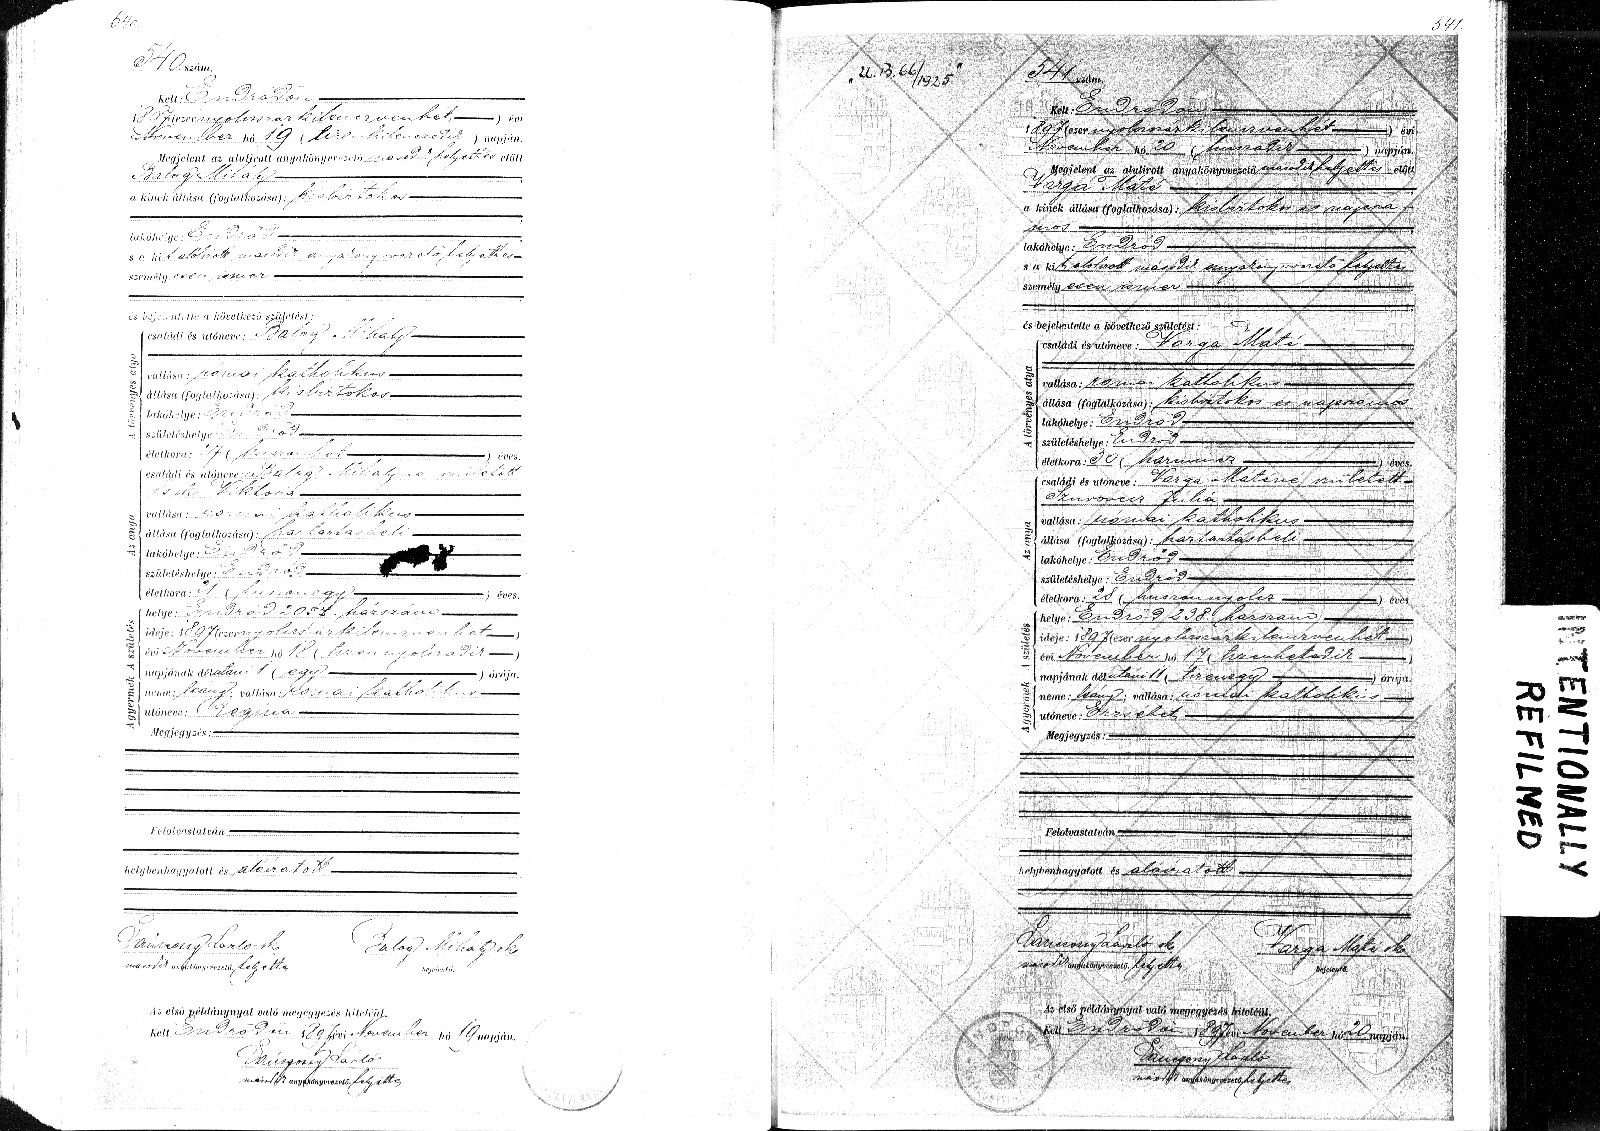 540
540 szám.
Kelt: Endrődön
1897 (ezernyolcszázkilencvenhét) évi
November hó 19 (tizenkilencedik) napján.
Megjelent az alulirott anyakönyvvezető másod helyettes előtt
Balog Mihály
a kinek állása (foglalkozása): kisbirtokos
lakóhelye: Endrőd
s a kit alólirott második anyakönyvvezető helyettes
személyesen ismer
és bejelentette a következő születést:
A törvényes atya
családi és utóneve: Balog Mihály
vallása: romai katholikus
állása (foglalkozása): kisbirtokos
lakóhelye: Endrőd
születéshelye: Endrőd
életkora: 27 (huszonhét) éves.
Az anya
családi és utóneve: Balog Mihályné született
Viktoria
vallása: romai katholikus
állása (foglalkozása): háztartásbeli
lakóhelye: Endrőd
születéshelye: Endrőd
életkora: 21 (huszonegy) éves.
A gyermek A születés
helye: Endrőd házszám
ideje: 1897 (ezernyolcszázkilencvenhét)
évi November hó 18 (tizennyolcadik)
napjának délutáni 1 (egy) órája.
neme: leány; vallása: romai katholikus
utóneve: Regina
Megjegyzés:
Felolvastatván
helybenhagyatott és aláiratott
László sk
második anyakönyvvezető helyettes
Balog Mihály sk
bejelentő.
Az első példánynyal való megegyezés hiteléül.
Kelt Endrődön 1897 évi November hó 19 napján.
László
második anyakönyvvezető helyettes
541.
"U.B. 66/1925"
541 szám.
Kelt: Endrődön
1897 (ezernyolcszázkilencvenhét) évi
November hó 20 (huszadik) napján.
Megjelent az alulirott anyakönyvvezető másodikhelyettes előtt
Varga Máté
a kinek állása (foglalkozása): kisbirtokos és napszá-
mos
lakóhelye: Endrőd
s a kit alólirott második anyakönyvvezető helyettes
személyesen ismer
és bejelentette a következő születést:
A törvényes atya
családi és utóneve: Varga Máté
vallása: romai katholikus
állása (foglalkozása): kisbirtokos és napszámos
lakóhelye: Endrőd
születéshelye: Endrőd
életkora: 30 (harmincz) éves.
Az anya
családi és utóneve: Varga Máténé született
Julia
vallása: romai katholikus
állása (foglalkozása): háztartásbeli
lakóhelye: Endrőd
születéshelye: Endrőd
életkora: 28 (huszonnyolcz) éves
A gyermek A születés
helye: Endrőd 238 házszám
ideje: 1897 (ezernyolcszázkilencvenhét)
évi November hó 17 (tizenhetedik)
napjának délutáni 11 (tizenegy) órája.
neme: leány; vallása: romai katholikus
utóneve: Erzsébet
Megjegyzés:
Felolvastatván
helybenhagyatott és aláiratott
László sk
második anyakönyvvezető helyettes
Varga Máté sk
bejelentő.
Az első példánynyal való megegyezés hiteléül.
Kelt Endrődön 1897 évi November hó 20 napján.
László
második anyakönyvvezető helyettes
INTENTIONALLY
REFILMED